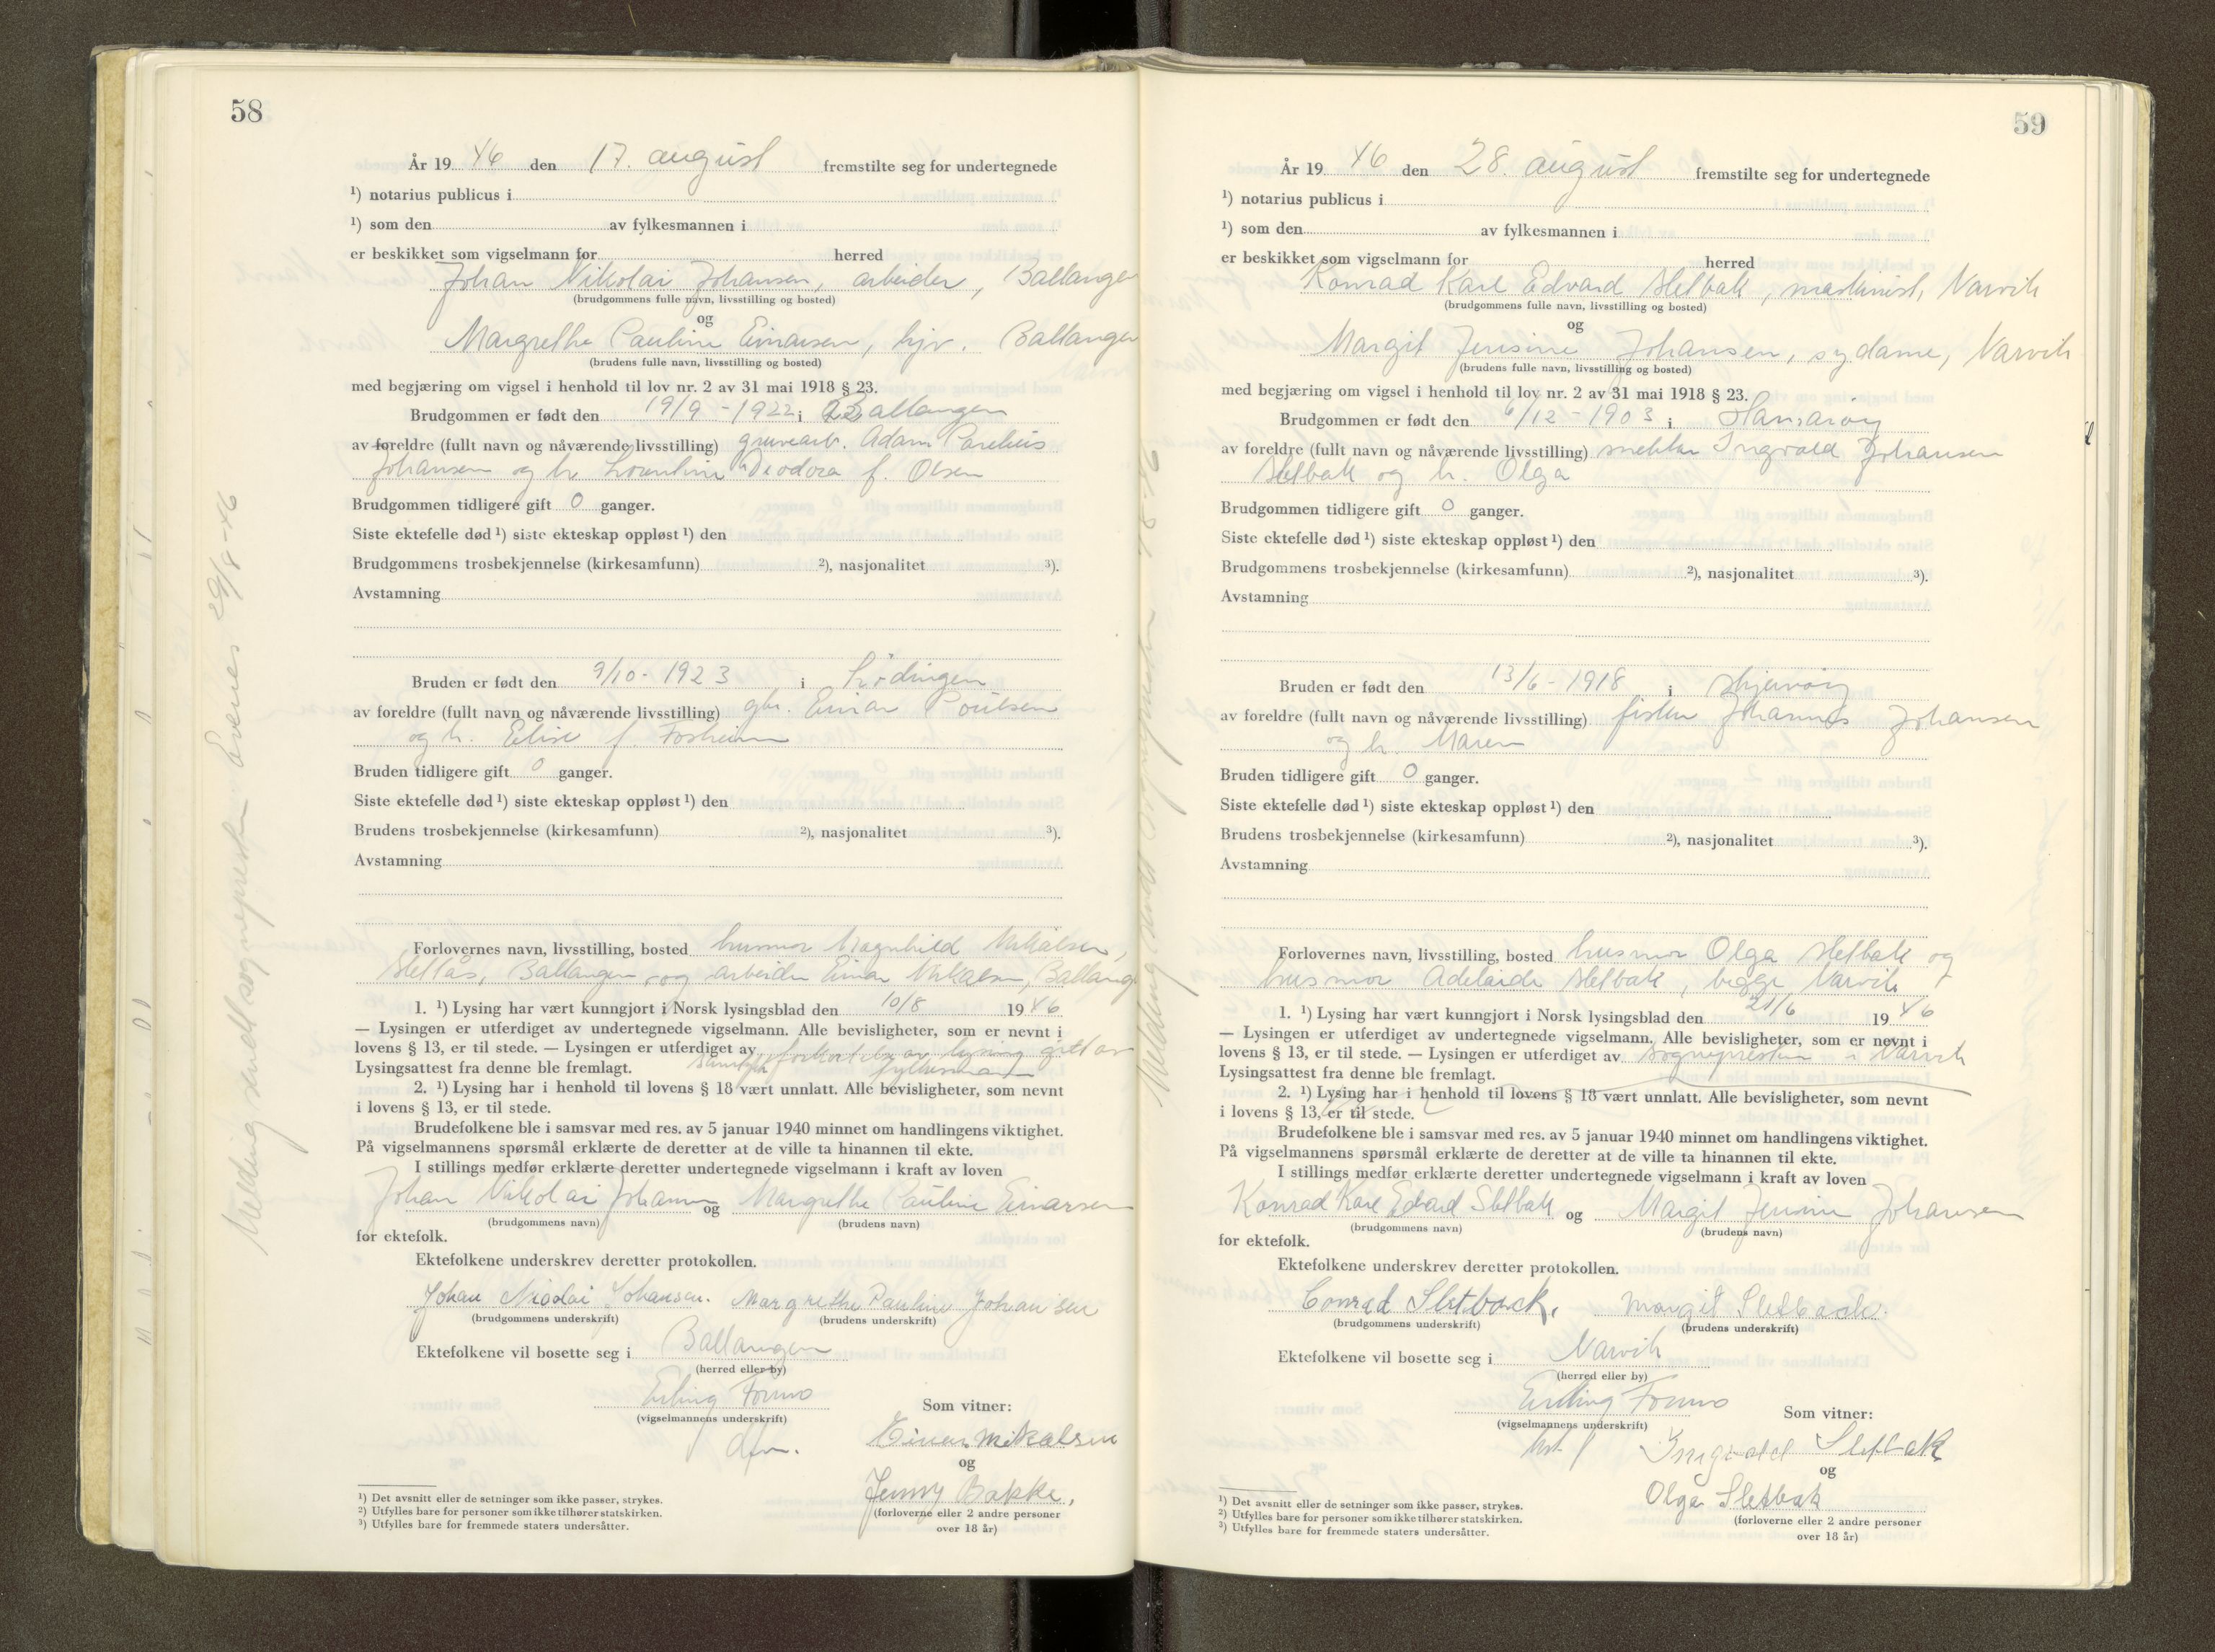 58
År 19 46 den 17. august fremstilte seg for undertegnede
¹) notarius publicus i
¹) som den av fylkesmannen i
er beskikket som vigselmann for herred
Johan Nikolai Johansen, arbeider, Ballangen
(brudgommens fulle navn, livsstilling og bosted)
og
Margrethe Pauline Einarsen, hjv. Ballangen
(brudens fulle navn, livsstilling og bosted)
med begjæring om vigsel i henhold til lov nr. 2 av 31 mai 1918 § 23.
Brudgommen er født den 19/9 - 1922 i Ballangen
av foreldre (fullt navn og nåværende livsstilling) gruvearb. Adam
Johansen og h. Deodora f. Olsen
Brudgommen tidligere gift 0 ganger.
Siste ektefelle død ¹) siste ekteskap oppløst ¹) den
Brudgommens trosbekjennelse (kirkesamfunn) ²), nasjonalitet ³).
Avstamning
Bruden er født den 9/10 - 1923 i Lødingen
av foreldre (fullt navn og nåværende livsstilling) gbr. Einar Poulsen
og h. Elise f. Forsheim
Bruden tidligere gift 0 ganger.
Siste ektefelle død ¹) siste ekteskap oppløst ¹) den
Brudens trosbekjennelse (kirkesamfunn) ²), nasjonalitet ³).
Avstamning
Forlovernes navn, livsstilling, bosted husmor Magnhild Mikalsen,
Slettås, Ballangen og arbeider Einar Mikalsen, Ballang
1. ¹) Lysing har vært kunngjort i Norsk lysingsblad den 10/8 19 46
— Lysingen er utferdiget av undertegnede vigselmann. Alle bevisligheter, som er nevnt i
lovens § 13, er til stede. — Lysingen er utferdiget av forkortelse av lysing gitt av
Lysingsattest fra denne ble fremlagt. fylkesmann
2. ¹) Lysing har i henhold til lovens § 18 vært unnlatt. Alle bevisligheter, som nevnt
i lovens § 13, er til stede.
Brudefolkene ble i samsvar med res. av 5 januar 1940 minnet om handlingens viktighet.
På vigselmannens spørsmål erklærte de deretter at de ville ta hinannen til ekte.
I stillings medfør erklærte deretter undertegnede vigselmann i kraft av loven
Johan Nikolai Johansen og Margrethe Pauline Einarsen
(brudgommens navn) (brudens navn)
for ektefolk.
Ektefolkene underskrev deretter protokollen.
Johan Nicolai Johansen. Margrethe Pauline Johansen
(brudgommens underskrift) (brudens underskrift)
Ektefolkene vil bosette seg i Ballangen
(herred eller by)
Erling Formo
(vigselmannens underskrift)
Som vitner:
dfm. Einar Mikalsen
og
Jenny Bakke,
(forloverne eller 2 andre personer
over 18 år)
¹) Det avsnitt eller de setninger som ikke passer, strykes.
²) Utfylles bare for personer som ikke tilhører statskirken.
³) Utfylles bare for fremmede staters undersåtter.
Melding sendt sogneprest Evenes 29/8-46
59
År 19 46 den 28. august fremstilte seg for undertegnede
¹) notarius publicus i
¹) som den av fylkesmannen i
er beskikket som vigselmann for herred
Konrad Karl Edvard Sletbak, maskinist, Narvik
(brudgommens fulle navn, livsstilling og bosted)
og
Margit Jensine Johansen, sydame, Narvik
(brudens fulle navn, livsstilling og bosted)
med begjæring om vigsel i henhold til lov nr. 2 av 31 mai 1918 § 23.
Brudgommen er født den 6/12 - 1903 i Hamarøy
av foreldre (fullt navn og nåværende livsstilling) snekker Ingvald Johansen
Sletbak og h. Olga
Brudgommen tidligere gift 0 ganger.
Siste ektefelle død ¹) siste ekteskap oppløst ¹) den
Brudgommens trosbekjennelse (kirkesamfunn) ²), nasjonalitet ³).
Avstamning
Bruden er født den 13/6 - 1918 i Skjervøy
av foreldre (fullt navn og nåværende livsstilling) fisker Johannes Johansen
og h. Maren
Bruden tidligere gift 0 ganger.
Siste ektefelle død ¹) siste ekteskap oppløst ¹) den
Brudens trosbekjennelse (kirkesamfunn) ²), nasjonalitet ³).
Avstamning
Forlovernes navn, livsstilling, bosted husmor Olga Sletbak og
husmor Adelaide Sletbak, begge Narvik
1. ¹) Lysing har vært kunngjort i Norsk lysingsblad den 21/6 19 46
— Lysingen er utferdiget av undertegnede vigselmann. Alle bevisligheter, som er nevnt i
lovens § 13, er til stede. — Lysingen er utferdiget av sognepresten i Narvik
Lysingsattest fra denne ble fremlagt.
2. ¹) Lysing har i henhold til lovens § 18 vært unnlatt. Alle bevisligheter, som nevnt
i lovens § 13, er til stede.
Brudefolkene ble i samsvar med res. av 5 januar 1940 minnet om handlingens viktighet.
På vigselmannens spørsmål erklærte de deretter at de ville ta hinannen til ekte.
I stillings medfør erklærte deretter undertegnede vigselmann i kraft av loven
Konrad Karl Edvard Sletbak og Margit Jensine Johansen
(brudgommens navn) (brudens navn)
for ektefolk.
Ektefolkene underskrev deretter protokollen.
Conrad Sletback. Margit Sletback.
(brudgommens underskrift) (brudens underskrift)
Ektefolkene vil bosette seg i Narvik
(herred eller by)
Erling Formo
(vigselmannens underskrift)
Som vitner:
Ingvald Sletbak
og
Olga Sletbak
(forloverne eller 2 andre personer
over 18 år)
¹) Det avsnitt eller de setninger som ikke passer, strykes.
²) Utfylles bare for personer som ikke tilhører statskirken.
³) Utfylles bare for fremmede staters undersåtter.
Melding sendt